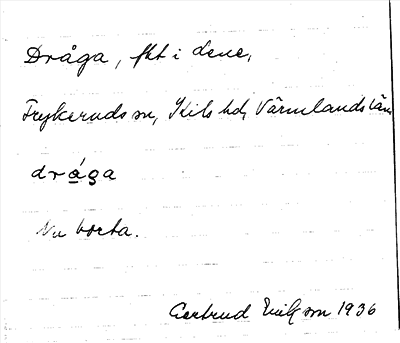 Dråga, fht i dene,
Frykeruds sn, Kils hd, Värmlands län
dråga
Nu borta.
Gertrud Eriksson 1936